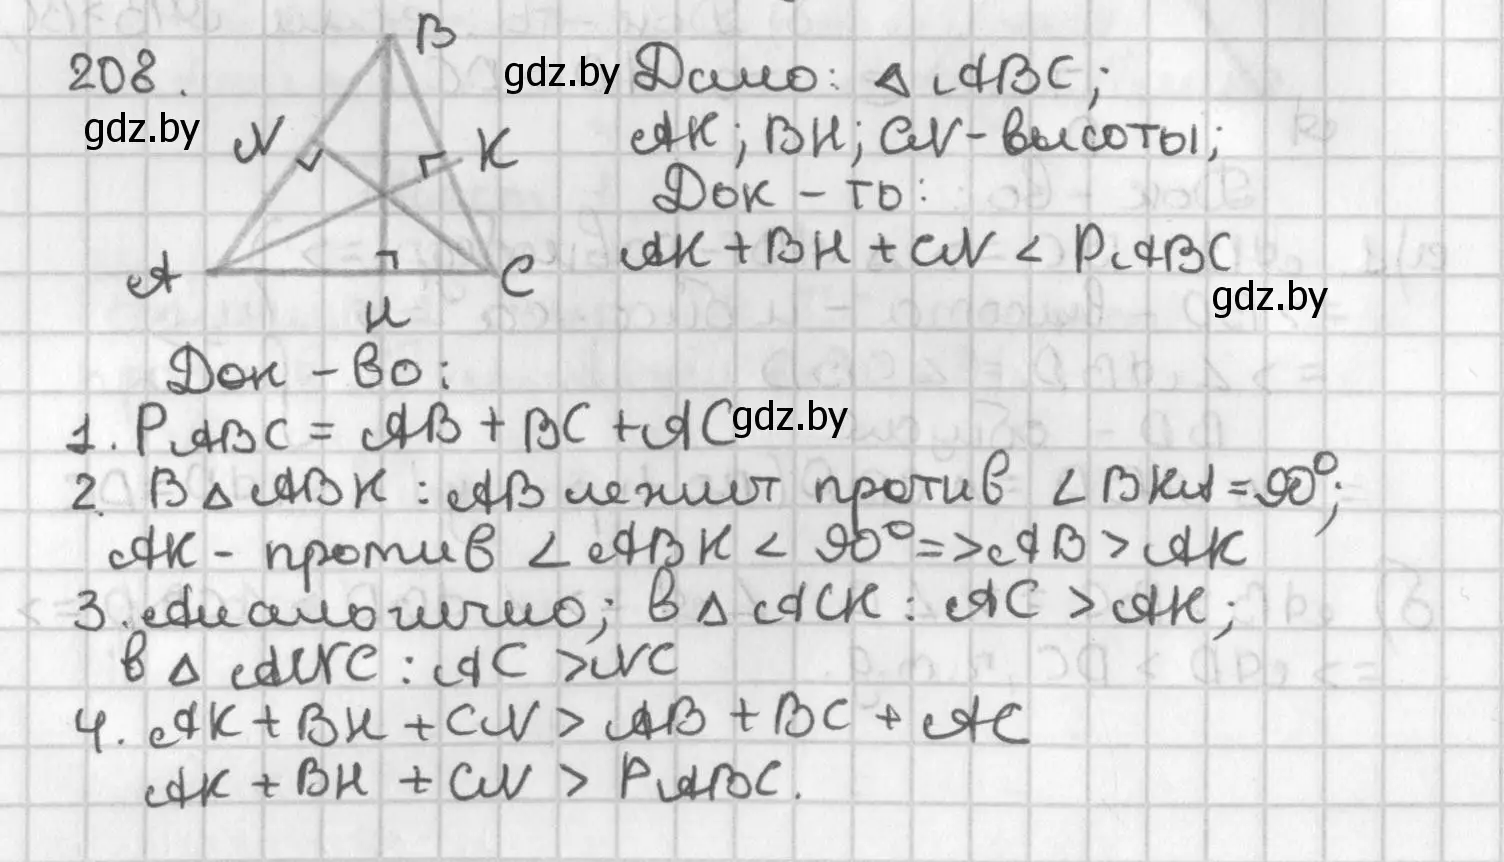 208.
gdz.by
B
N
K
A
C
H
gdz.by Дано: △ ABC;
AK; BH; CN - высоты;
Док - ть:
AK + BH + CN < PABC
gdz.by
Док - во:
1. PABC = AB + BC + AC gdz.by
2. В △ ABK : AB лежит против ∠ BKA = 90°;
AK - против ∠ ABK < 90° => AB > AK
3. Аналогично; в △ ACK : AC > AK;
в △ ANC : AC > NC
4. AK + BH + CN > AB + BC + AC
AK + BH + CN > PABC.